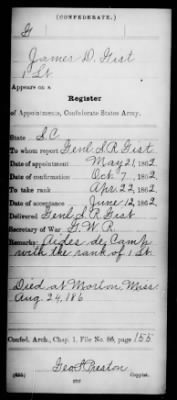 (CONFEDERATE.)
G
James D. Gist
1 Lt
Appears on a
Register
of Appointments, Confederate States Army.
State S.C.
To whom report Genl S R Gist
Date of appointment May 21, 1862
Date of confirmation Oct 7, 1862
To take rank Apr 22, 1862
Date of acceptance June 12, 1862
Delivered Genl S. R. Gist
Secretary of War G. W. R.
Remarks: Aides de Camp
with the rank of 1 Lt.
Died at Morton, Miss
Aug 24, 186
Confed. Arch., Chap. 1, File No. 86, page 155
Geo S Preston
Copyist.